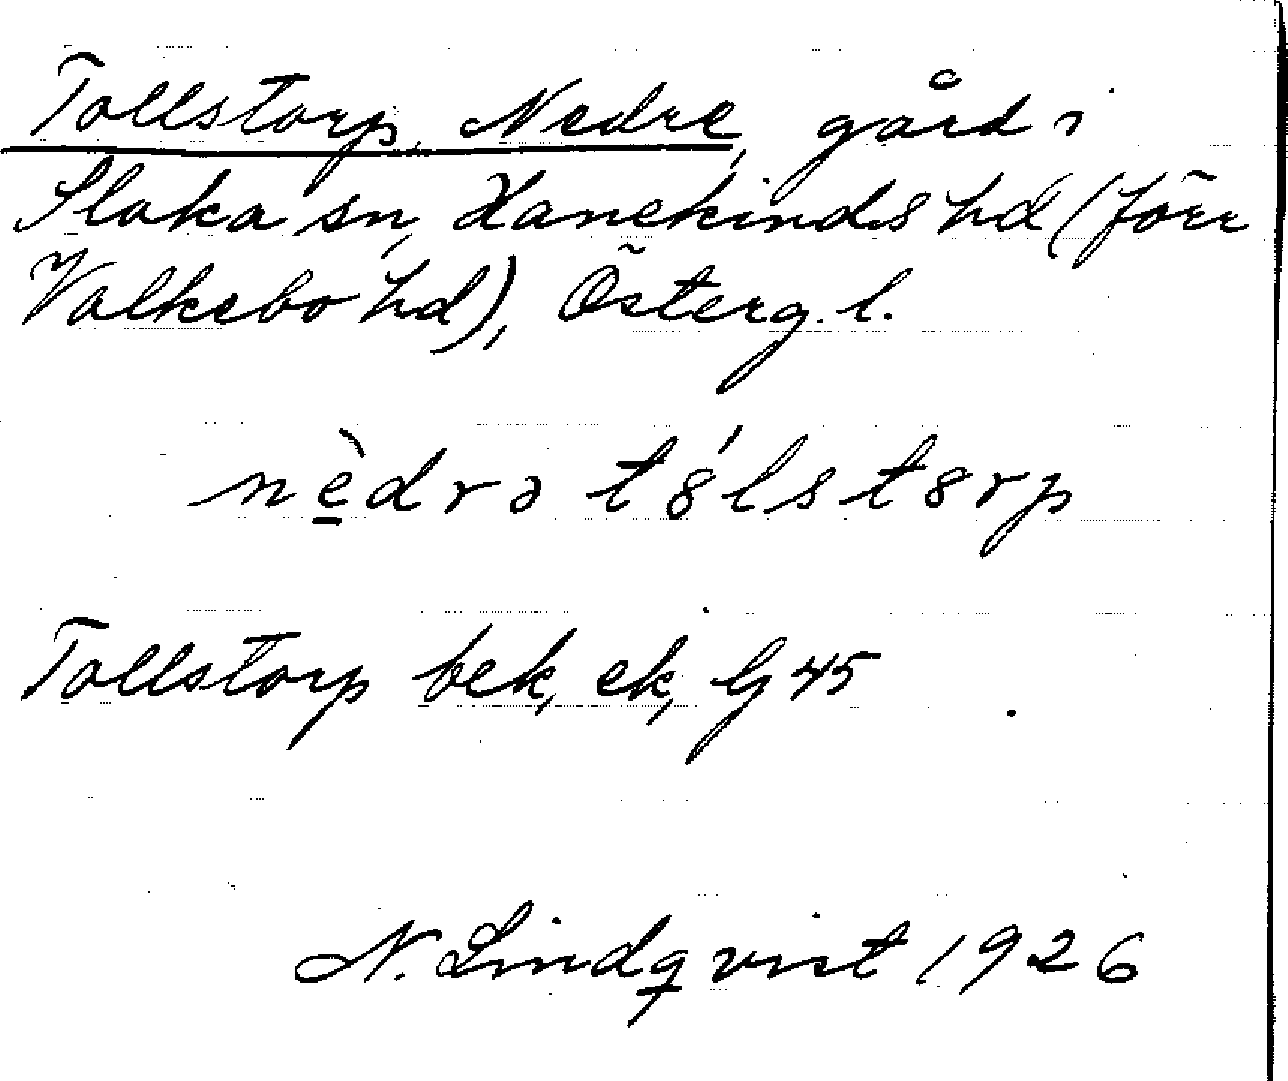 Tollstorp, Nedre, gård i
Slaka sn, Hanekinds hd (förr
Valkebo hd), Österg. l.
nẹ̀drə tȣ́lstȣrp
Tollstorp bek, ek, G 45
N. Lindqvist 1926